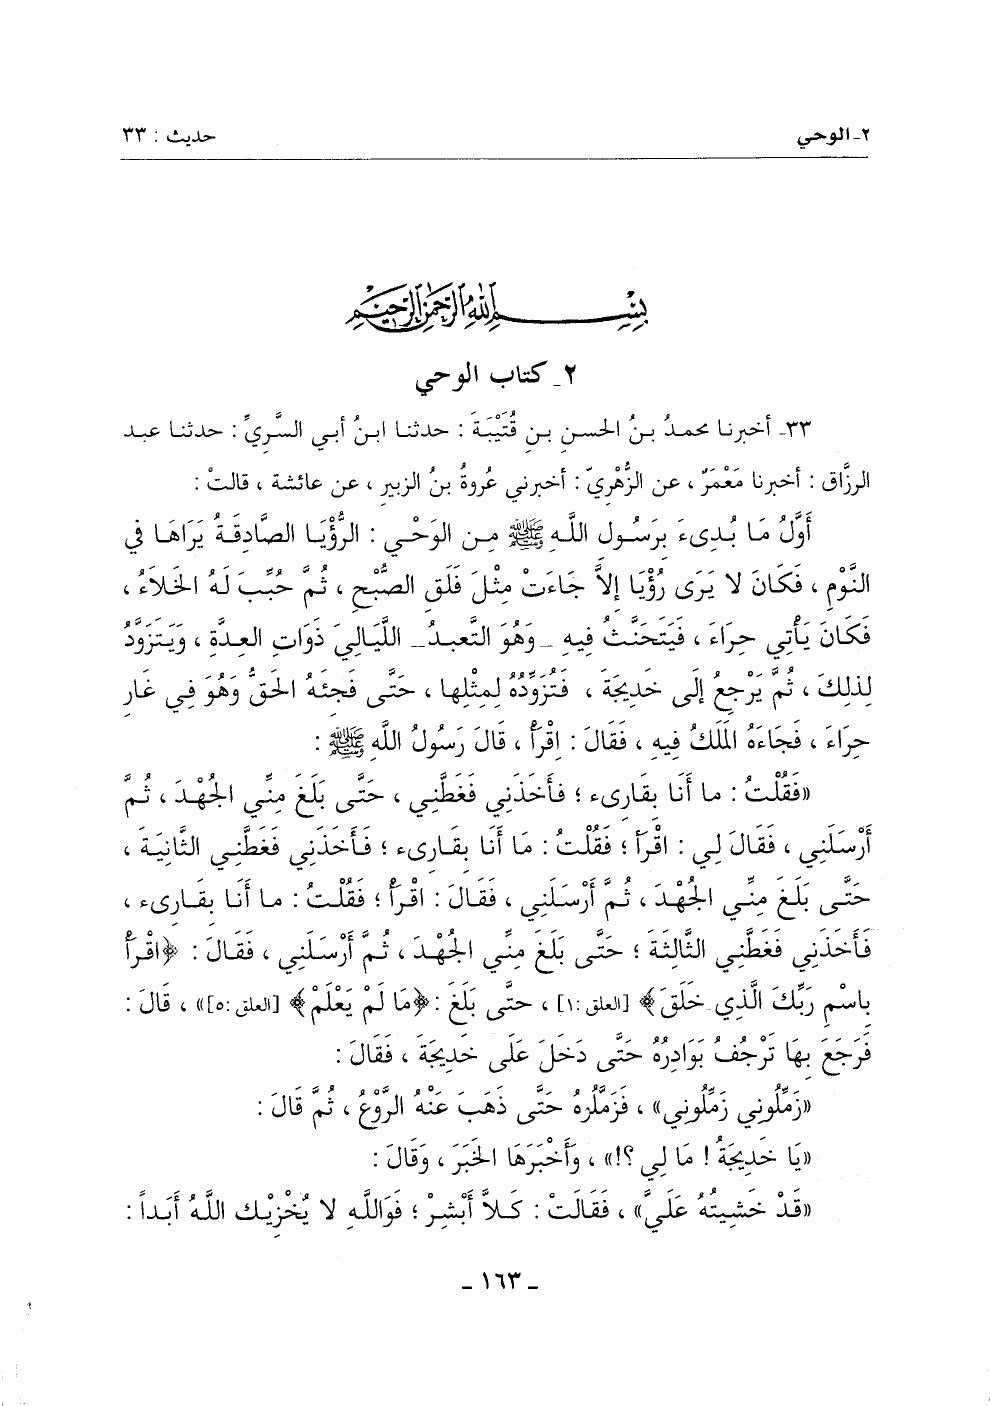 ٢ـ الوحي
حديث : ٣٣
بِسْمِ اللهِ الرَّحْمٰنِ الرَّحِيْمِ
٢ـ كتاب الوحي
٣٣ـ أخبرنا محمدُ بنُ الحسنِ بنِ قُتَيْبَةَ : حدثنا ابنُ أبي السَّرِيِّ : حدثنا عبد
الرزَّاق : أخبرنا مَعْمَرٌ ، عن الزُّهْرِيّ : أخبرني عُروةُ بنُ الزبيرِ ، عن عائشة ، قالتْ :
أَوَّلُ مَا بُدِىءَ بِرَسُولِ اللَّهِ ﷺ مِنِ الوَحْيِ : الرُّؤْيَا الصَّادِقَةُ يَرَاهَا فِي
النَّوْمِ ، فَكَانَ لا يَرَى رُؤْيَا إلاَّ جَاءَتْ مِثْلَ فَلَقِ الصُّبْحِ ، ثُمَّ حُبِّبَ لَهُ الخَلاَءُ ،
فَكَانَ يَأْتِي حِرَاءَ ، فَيَتَحَنَّثُ فِيهِ ـ وَهُوَ التَّعبدُ ـ اللَّيَالِيَ ذَوَاتِ العِدَّةِ ، وَيَتَزَوَّدُ
لِذلِكَ ، ثُمَّ يَرْجِعُ إِلَى خَدِيجَةَ ، فَتُزَوِّدُهُ لِمِثْلِها ، حَتَّى فَجِئَهُ الحَقُّ وَهُوَ فِي غَارِ
حِرَاءَ ، فَجَاءَهُ المَلَكُ فِيهِ ، فَقَالَ : اِقْرَأْ ، قَالَ رَسُولُ اللَّهِ ﷺ :
«فَقُلْتُ : ما أَنَا بِقَارِىء ؛ فأَخَذَنِي فَغَطَّنِي ، حَتَّى بَلَغَ مِنِّي الجُهْدَ ، ثُمَّ
أَرْسَلَنِي ، فَقَالَ لِي : اقْرَأ ؛ فَقُلْتُ : مَا أَنَا بِقَارِىء ؛ فَأَخَذَنِي فَغَطَّنِي الثَّانِيَةَ ،
حَتَّى بَلَغَ مِنِّي الجُهْدَ ، ثُمَّ أَرْسَلَنِي ، فَقَالَ : اقْرَأْ ؛ فَقُلْتُ : ما أَنَا بِقَارِىء ،
فَأَخَذَنِي فَغَطَّنِي الثَّالِثَةَ ؛ حَتَّى بَلَغَ مِنِّي الجُهْدَ ، ثُمَّ أَرْسَلَنِي ، فَقَالَ : ﴿اقْرَأْ
بِاسْمِ رَبِّكَ الَّذِي خَلَقَ﴾ [العلق :١] ، حتَّى بَلَغَ : ﴿مَا لَمْ يَعْلَمْ﴾ [العلق :٥]» ، قَالَ :
فَرَجَعَ بِهَا تَرْجُفُ بَوَادِرُهُ حَتَّى دَخَلَ عَلَى خَدِيجَةَ ، فَقَالَ :
«زَمِّلُونِي زَمِّلُونِي» ، فَزَمَّلُوهُ حَتَّى ذَهَبَ عَنْهُ الرَّوْعُ ، ثُمَّ قَالَ :
«يَا خَدِيجَةُ ! مَا لِي ؟!» ، وَأَخْبَرَهَا الخَبَرَ ، وَقَالَ :
«قَدْ خَشِيتُهُ عَلَيَّ» ، فَقَالَتْ : كَلاَّ أَبْشِرْ ؛ فَوَاللَّهِ لا يُخْزِيكَ اللَّهُ أَبَداً :
ـ ١٦٣ ـ